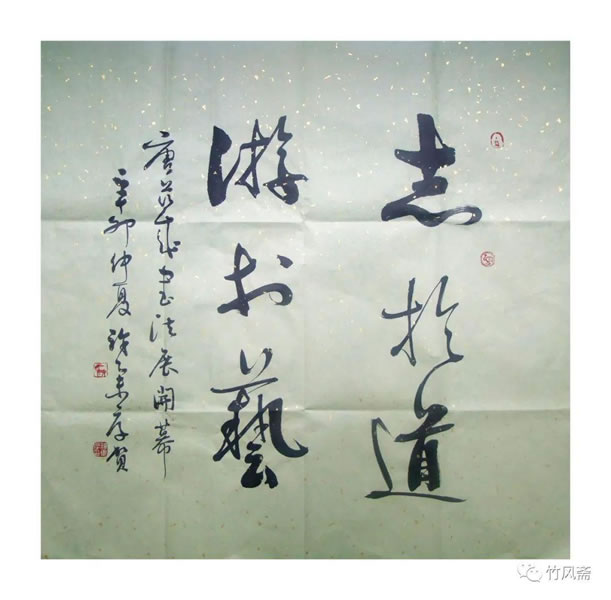 志於道
游於藝
唐書法展開幕
辛卯仲夏賀
竹风斋